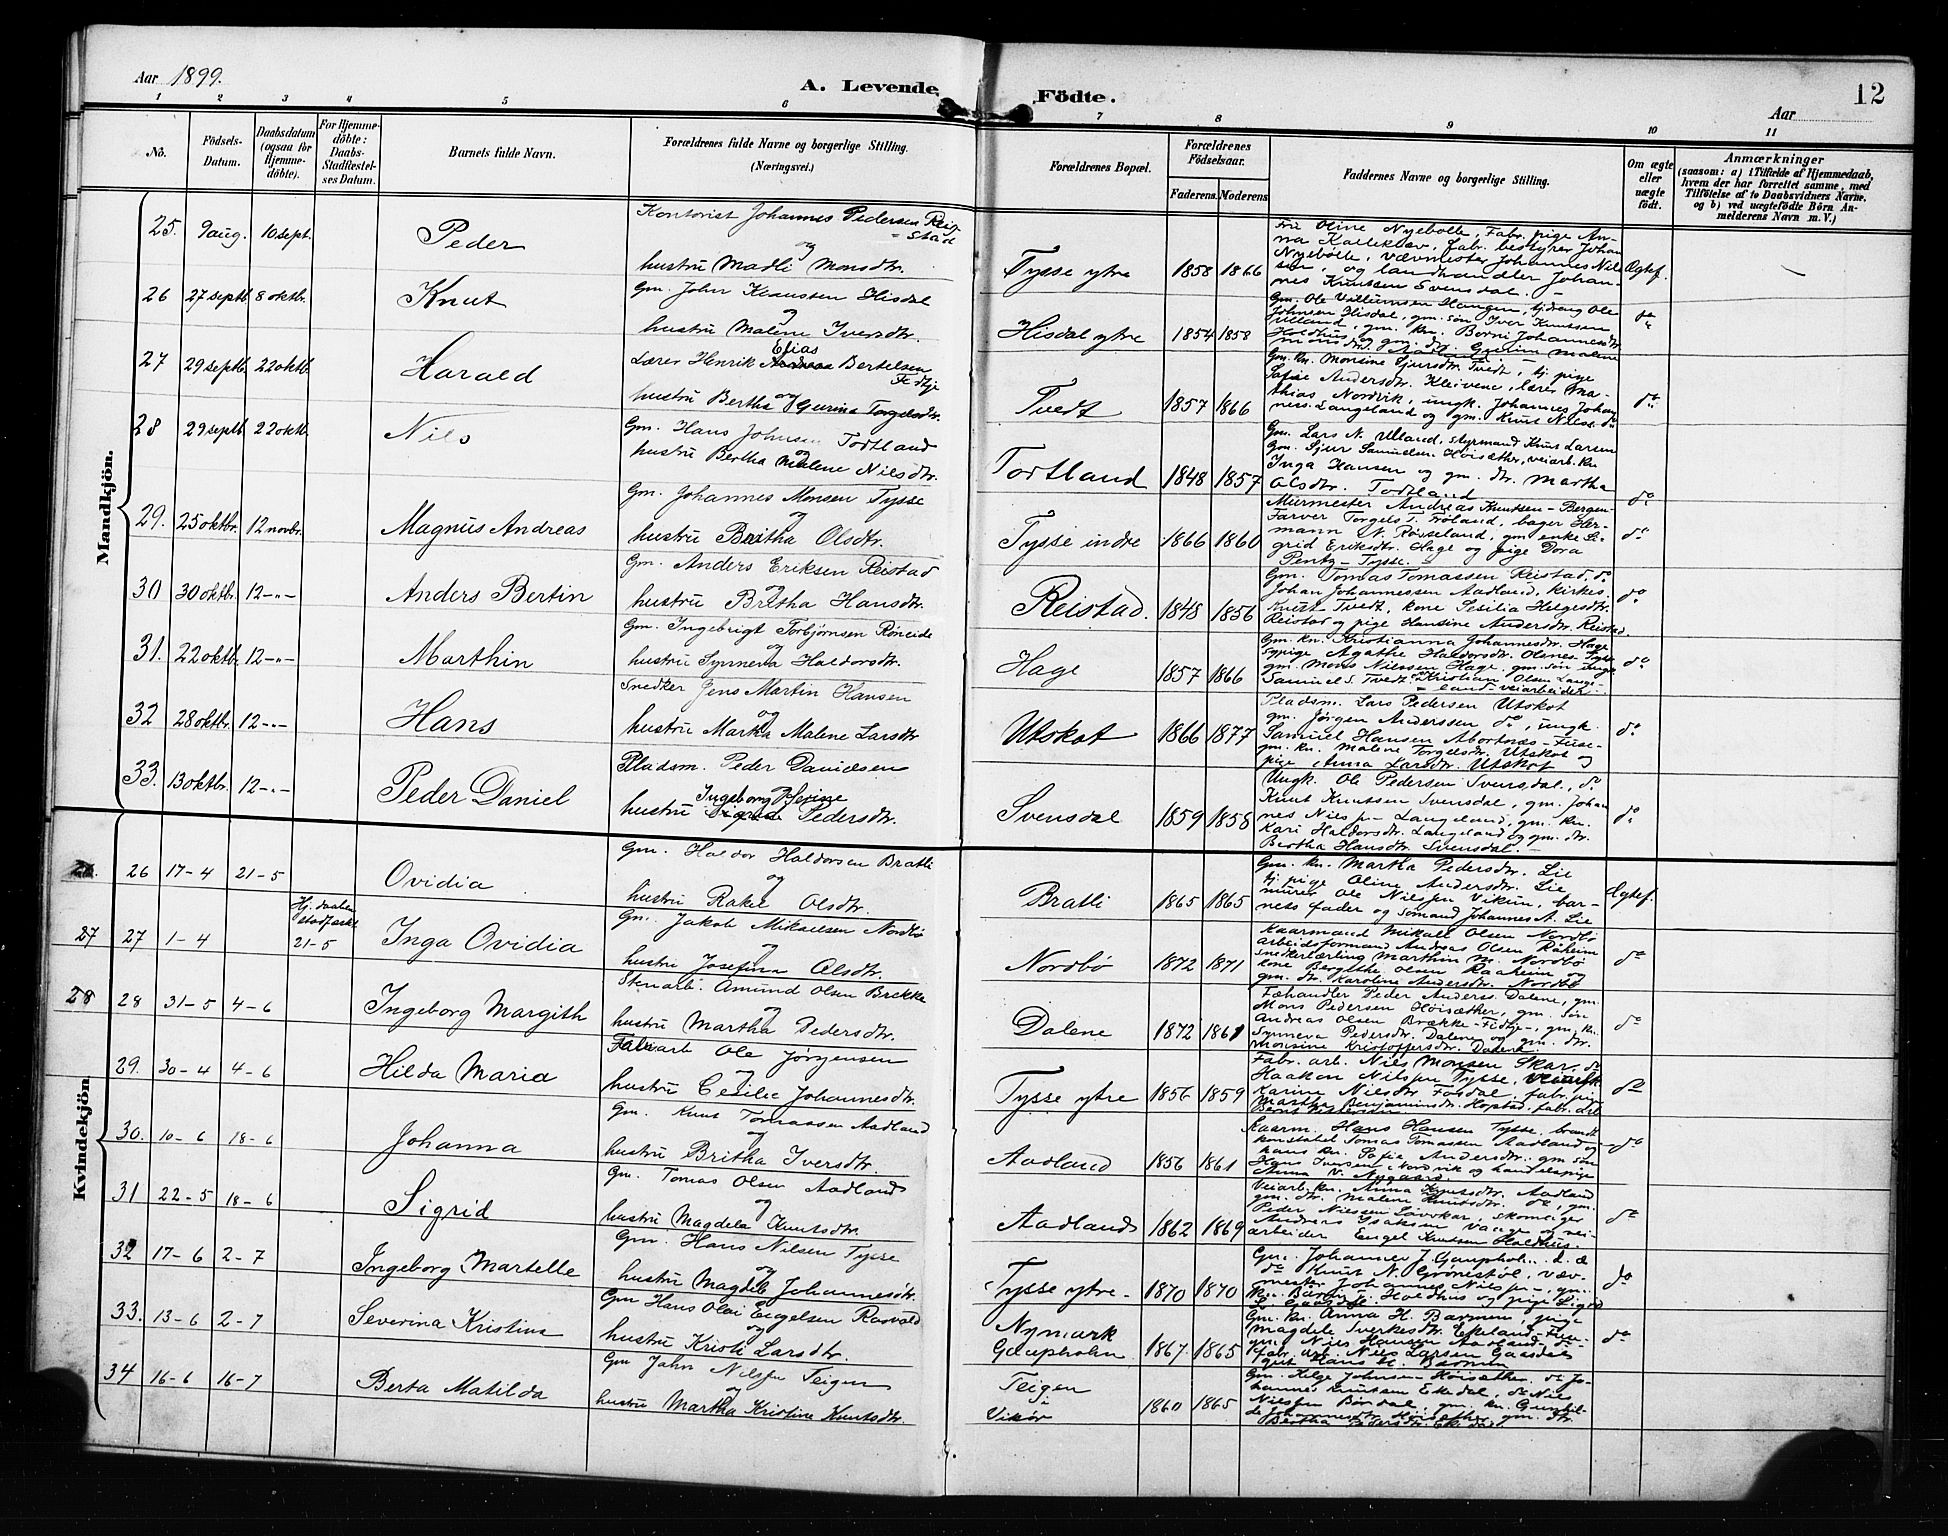 Aar 1899.
A. Levende Födte.
Aar
12
1 2 3 4 5 6 7 8 9 10 11
Nô.
Födsels-Datum.
Daabsdatum (ogsaa for Hjemme-döbte).
For Hjemme-döbte: Daabs-Stadfæstel-ses Datum.
Barnets fulde Navn.
Forældrenes fulde Navne og borgerlige Stilling. (Næringsvei.)
Forældrenes Bopæl.
Forældrenes Födselsaar.
Faderens. Moderens.
Faddernes Navne og borgerlige Stilling.
Om ægte eller uægte födt.
Anmærkninger
(saasom: a) i Tilfælde af Hjemmedaab,
hvem der har forrettet samme, med
Tilföielse af to Daabsvidners Navne,
og b) ved uægtefödte Börn An-
melderens Navn m. V.)
Mandkjön.
25. 9 aug. 10 sept. Peder
Kontorist Johannes Pedersen Reistad
og
hustru Madli Monsdtr.
Tysse ytre 1858 1866
Fru Oline Nyebölle, Fabr. pige An-
na Kalleklev, fabr. bestyrer Johan
Nyebölle, vævmester Johannes Nil-
sen, og landhandler Johan-
nes Knutsen Svensdal.
Ægtef.
26 27 septb 8 oktbr. Knut
Gm. John Klaussen Hisdal
og
hustru Malene Iversdtr.
Hisdal ytre 1854 1858
Gm. Ole Villumsen Haugen, tjdreng Ole
Johnsen Hisdal, gm. søn Iver Knutsen
do
27 29 septb. 22 oktb. Harald
Lærer Henrik Elias Bertelsen Fedtje
og
hustru Bertha Gurina Torgelsdtr.
Tvedt 1857 1866
Gm. kn. Monsine Sjursdtr. Tvedt, tj. pige
Sofie Andersdtr. Kleivene, lærer Ma-
thias Nordvik, ungk. Johannes Johan-
ness. Langeland og gm. Knut Nilss. do
do
28 29 septb 22 oktb. Nils
Gm. Hans Johnsen Todtland
og
hustru Bertha Malene Nilsdtr.
Tortland 1848 1857
Gm. Lars N. Ulland, styrmand Knut Larsen
Gm. Sjur Samuelsen Höisæther, veiarb. kn
Inga Hansen og gm. dr. Martha
Olsdtr. Todtland
do
29. 25 oktbr. 12 novbr. Magnus Andreas
Gm. Johannes Monsen Tysse
og
hustru Britha Olsdtr.
Tysse indre 1866 1860
Murmester Andreas Knutsen - Bergen
Farver Torgels T. Fröland, bager Her-
mann N. Röyseland, gm enke Si-
grid Eriksdtr. Hage og pige Dora
Pentz - Tysse.
do
30 30 oktbr. 12-"- Anders Bertin
Gm. Anders Eriksen Reistad
og
hustru Britha Hansdtr.
Reistad. 1848 1856
Gm. Tomas Tomassen Reistad, do
Johan Johannessen Aadland, kirkes.
Knut Tvedt, kone Sesilia Helgesdtr.
Reistad og pige Hansine Andersdtr. Reistad.
do
31. 22 oktbr. 12-"- Marthin
Gm. Ingebrigt Torbjörnsen Röneide
og
hustru Synneva Haldorsdtr.
Hage 1857 1866
Gm. kn. Kristianna Johannesdtr. Hage
Sypige Agathe Haldorsdtr. Olsnes-Tysse
gm. Mons Nilssen Hage, gm. søn ungk.
Samuel S. Tvedt, Kristian Olsen Lange-
land - veiarbeider.
do
32 28 oktbr. 12-"- Hans
Snedker Jens Martin Hansen
og
hustru Martha Malene Larsdtr
Utskot 1866 1877
Pladsm. Lars Pedersen Utskot
gm. Jörgen Anderssen do, ungk.
Samuel Hansen Abortnæs-Fuse-
gm. kn. Malene Torgelsdtr. Utskot og
pige Anna Larsdtr. Utskot
do
33. 13 oktbr. 12-"- Peder Daniel
Pladsm. Peder Danielsen
og
hustru Ingeborg Serine Pedersdtr.
Svensdal 1859 1858
Ungk. Ole Pedersen Svensdal, do
Knut Knutsen Svensdal, gm. Johan-
nes Nilsen - Langeland, gm. kn.
Kari Haldorsdtr. Langeland og gm. dtr.
Bertha Hansdtr. Svensdal.
do
Kvindekjön.
26 17-4 21-5 Ovidia
Gm. Haldor Haldorsen Bratli
og
hustru Rakel Olsdtr.
Bratli 1865 1865
Gm. kn. Martha Pedersdtr. Lie
tj. pige Oline Andersdtr. Lie
murer Ole Nilssen Vikim, bar-
nets fader og sömand Johannes A. Lie
Ægtef.
27 27 1-4 Hj. daaben stadfæstet 21-5 Inga Ovidia
Gm. Jakob Mikalsen Nordbö
og
hustru Josefina Olsdtr.
Nordbö 1872 1871
Kaarmand Mikall Olsen Nordbö
arbeidsformand Andreas Olsen Raaheim
snedkerlærling Marthin M. Nordbö
kone Bergithe Olsen Raaheim og
gm. dr. Karoline Andersdtr. Nordbö
do
28 28 31-5 4-6 Ingeborg Margith
Stenarb. Amund Olsen Brekke
og
hustru Martha Pedersdtr.
Dalene 1872 1861
Fæhandler Peder Anderss. Dalene, gm.
Mons Pedersen Höisæther, gm. søn
Andreas Olsen Brække-Fidtje-, gm. kn.
Synneva Pedersdtr. Dalene og gm. dtr.
Monsine Kristoffersdtr. Dalene
do
29. 30-4 4-6 Hilda Maria
Fabrarb Ole Jörgensen
og
hustru Cecilie Johannesdtr.
Tysse ytre 1856 1859
Fabr. arb. Nils Monsen Skar, do
Haakon Nilssen Tysse, veiarb. kn
Karine Nilsdtr. Fosdal, fabr. pige
Martha Benjaminsdtr. Hopstad, fabr. arb
do
30. 10-6 18-6 Johanna
Gm. Knut Tomassen Aadland
og
hustru Britha Iversdtr.
Aadland 1856 1861
Kaarm. Hans Hansen Tysse, brandt-
konstabel Tomas Tomassen Aadland og
hans kn. Sofie Andersdtr. gm søn
Hans Iversen Nordvik og handelspige
Anna V. Nygaard.
do
31 22-5 18-6 Sigrid
Gm. Tomas Olsen Aadland
og
hustru Magdela Knutsdtr.
Aadland 1862 1869
Veiarb. kn. Anna Knutsdtr. Aadland
gm. dtr. Malene Knutsdtr. do, gm.
Peder Nilssen Lövskar, skomager
Andreas Isaksen Vaage og vei-
arbeider Engel Knutsen Holdhus.
do
32 17-6 2-7 Ingeborg Martelle
Gm. Hans Nilsen Tysse
og
hustru Magdela Johannesdtr.
Tysse ytre 1870 1870
Gm. Johannes J. Gjæupholm
do Knut N. Grönestöl, væv-
mester Johannes Nilssen-, gm.
do
33. 13-6 2-7 Severina Kristina
Gm Hans Olai Engelsen Rosvold
og
hustru Kristi Larsdtr.
Nymark Gjæupholm 1867. 1865
Gm. kn. Anna H. Barmen, pige
Magdele Sverkesdtr. Ekeland-Fu-
gm. Nils Hansen Aadland-
fabr. arb. Nils Larsen Gaasdal
gut Hans H. Barmen
do
34 16-6 16-7 Berta Matilda
Gm John Nilssen Teigen
og
hustru Martha Kristine Knutsdtr.
Teigen i Vikör 1860 1865
Gm. Helge Johnsen Höisæther, do Jo-
hannes Knutsen Ekedal, do Nils
Nilssen Bördal, gm. kn. Gunhil-